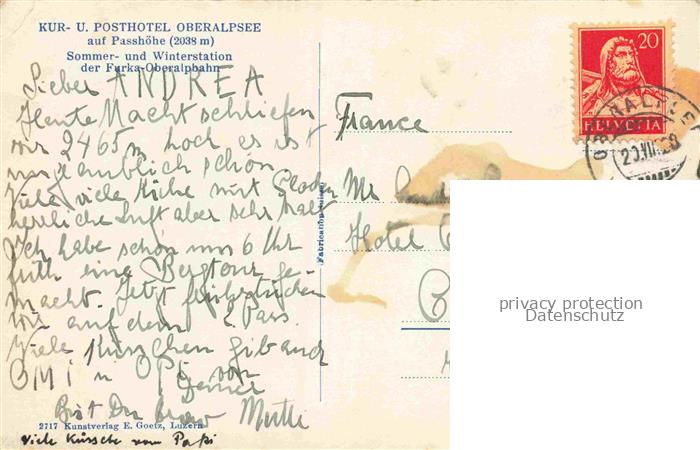 KUR- U. POSTHOTEL OBERALPSEE
auf Passhöhe (2038 m)
Sommer- und Winterstation
der Furka-Oberalpbahn
Lieber ANDREA
Heute Nacht schliefen
wir 2465 m hoch es ist
unglaublich schön
viele viele Kühe mit Glocken
herrliche Luft aber sehr kalt
Ich habe schon um 6 Uhr
früh eine Bergtour ge-
macht. Jetzt frühstücken
wir auf dem Pass.
Viele Küsschen gib auch
OMI u OPI von
Deiner
Bist Du brav Mutti
2717 Kunstverlag E. Goetz, Luzern
Viele Küsse vom Papi
Fabrication suisse
20
HELVETIA
OBERALPSEE
20.VII.28
France
Mr
Hotel
privacy protection
Datenschutz